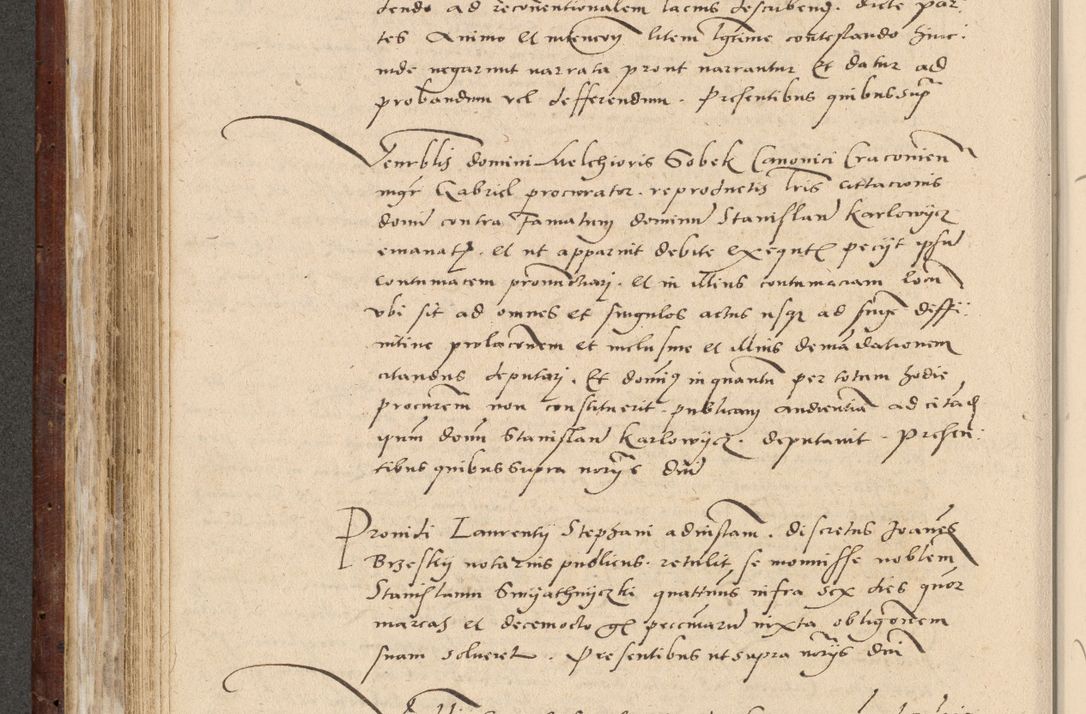 dendo ad reconventionalem lacius describend. dicte par
tes Animo et intencon litem lgtime contestando hinc
inde negarunt narrata pront narrantur Et datur ad
probandum vel defferendum. Presentibus quibus sup
Venrblis domini Melchioris Sobek Canonici Cracovien
mgr Gabriel procurator. reproductis lris cittacionis
domi contra Famatum dominu Stanislau Karlowycz
emanat. et ut apparuit debite exequt pecyt ipsu
contumacem pronunctiarj. et in illius contumaciam locu
vbi sit ad omnes et singulos actus usq ad sniae diffi:
nitive prolaconem et inclusive et illius demandationem
citandus deputarj. Et dominus in quantu per totum hodie
procurem non constituerit. publicam audientia ad citad
ipsum domi Stanislau Karlowycz. deputavit. Presen:
tibus quibus supra noryis dni
Providi Laurentij Stephani ad instam. discretus Joanes
Brzeskij notarius publicus. retulit se monuisse noblem
Stanislaum Swyathnyczki quattnus infra sex dies quor
marcas et decemocto gr peccuniaru iuxta obligonem
suam solveret. Presentibus ut supra noryis dni